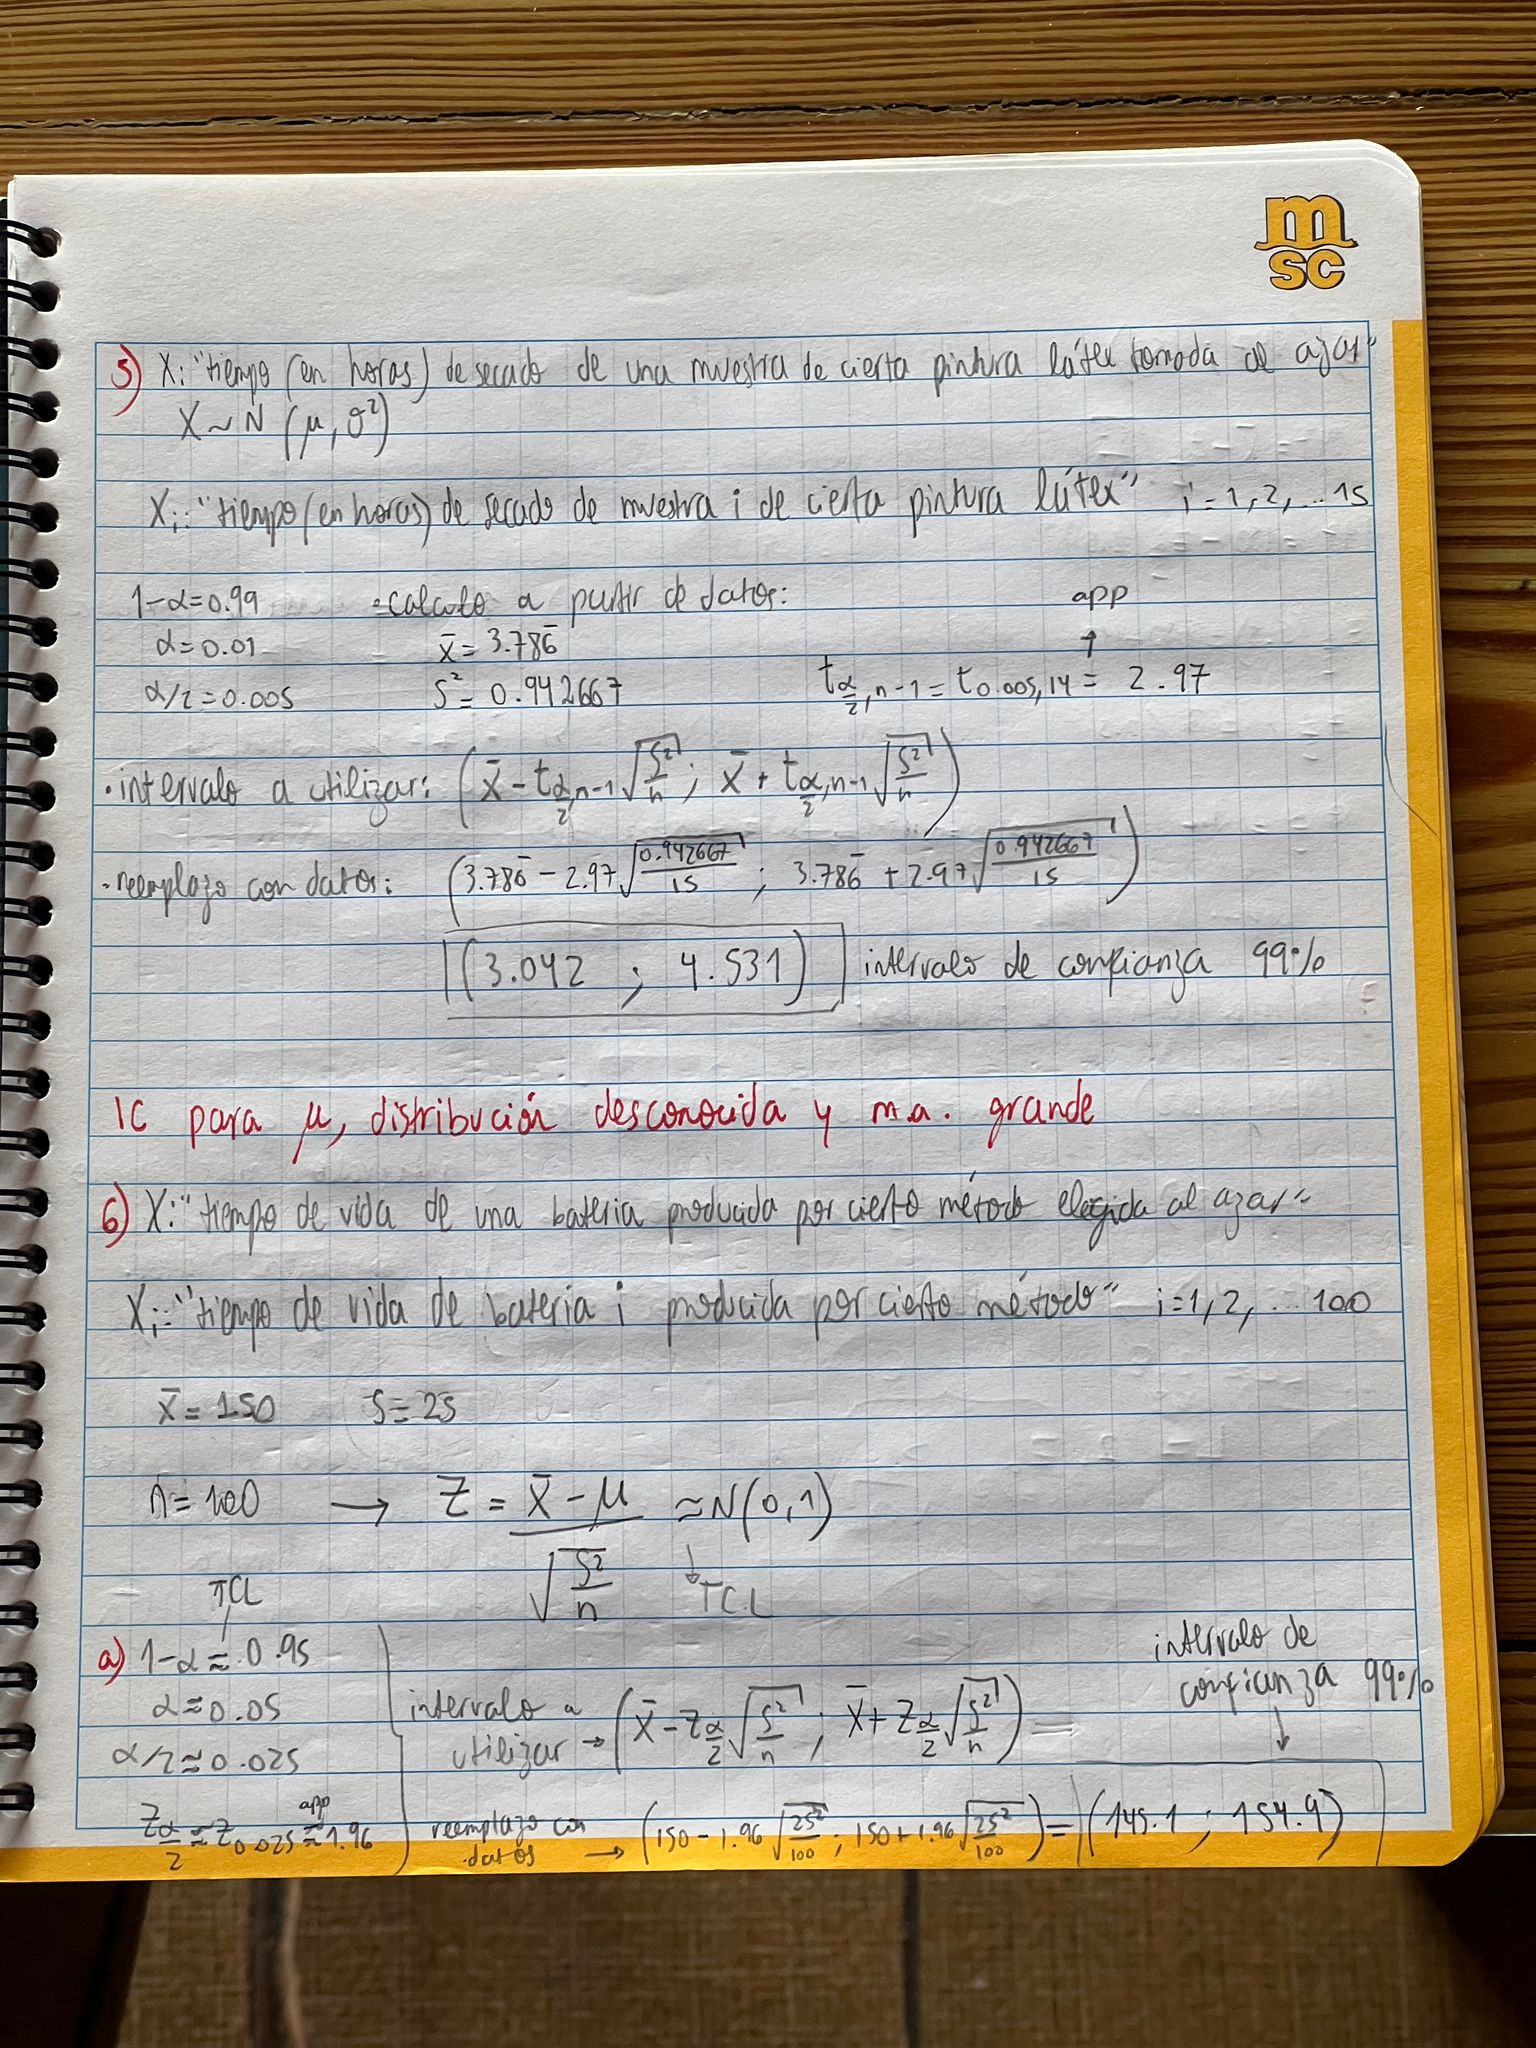 msc
5) X: "tiempo (en horas) de secado de una muestra de cierta pintura látex tomada al azar"
X ~ N (μ, σ²)
Xᵢ: "tiempo (en horas) de secado de muestra i de cierta pintura látex" i = 1, 2, ... 15
1-α = 0.99 calculo a partir de datos: app
α = 0.01 x̄ = 3.786̄ ↑
α/2 = 0.005 S² = 0.942667 t_{α/2, n-1} = t_{0.005, 14} = 2.97
• intervalo a utilizar: (x̄ - t_{α/2, n-1} √(S²/n) ; x̄ + t_{α/2, n-1} √(S²/n))
• reemplazo con datos: (3.786̄ - 2.97 √(0.942667/15) ; 3.786̄ + 2.97 √(0.942667/15))
(3.042 ; 4.531) intervalo de confianza 99%
IC para μ, distribución desconocida y m.a. grande
6) X: "tiempo de vida de una bateria producida por cierto método elegida al azar"
Xᵢ: "tiempo de vida de bateria i producida por cierto método" i = 1, 2, ... 100
x̄ = 150 S = 25
n = 100 → Z = (x̄ - μ) / √(S²/n) ≈ N(0,1)
↓ TCL
TCL
a) 1-α ≈ 0.95
α ≈ 0.05
α/2 ≈ 0.025
z_{α/2} ≈ z_{0.025} ≈ 1.96
app
intervalo a utilizar → (x̄ - z_{α/2} √(S²/n) ; x̄ + z_{α/2} √(S²/n)) =
intervalo de confianza 99%
↓
reemplazo con datos → (150 - 1.96 √(25²/100) ; 150 + 1.96 √(25²/100)) = (145.1 ; 154.9)